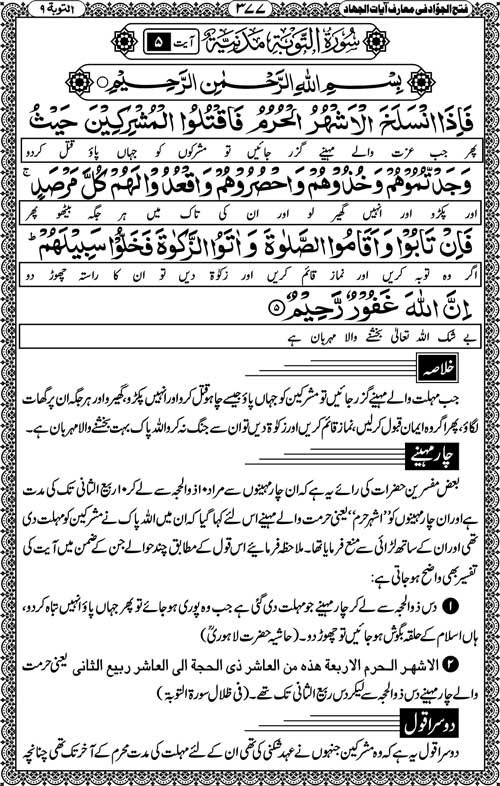 فتح الجوّاد فی معارف آیات الجهاد ۳۷۷ التوبة ۹
سُوْرَةُ التَّوْبَةِ مَدَنِیَّةٌ آیت ۵
بِسْمِ اللهِ الرَّحْمٰنِ الرَّحِیْمِ
فَاِذَا انْسَلَخَ الْاَشْهُرُ الْحُرُمُ فَاقْتُلُوا الْمُشْرِكِیْنَ حَیْثُ
پھر جب عزت والے مہینے گزر جائیں تو مشرکوں کو جہاں پاؤ قتل کردو
وَجَدْتُّمُوْهُمْ وَخُذُوْهُمْ وَاحْصُرُوْهُمْ وَاقْعُدُوْا لَهُمْ كُلَّ مَرْصَدٍ ۚ
اور پکڑو اور انہیں گھیر لو اور ان کی تاک میں ہر جگہ بیٹھو پھر
فَاِنْ تَابُوْا وَاَقَامُوا الصَّلٰوةَ وَاٰتَوُا الزَّكٰوةَ فَخَلُّوْا سَبِیْلَهُمْ ؕ
اگر وہ توبہ کریں اور نماز قائم کریں اور زکوٰۃ دیں تو ان کا راستہ چھوڑ دو
اِنَّ اللهَ غَفُوْرٌ رَّحِیْمٌ ۵
بے شک اللہ تعالیٰ بخشنے والا مہربان ہے
خلاصہ
جب مہلت والے مہینے گزر جائیں تو مشرکین کو جہاں پاؤ جیسے چاہو قتل کرو اور انہیں پکڑو، گھیرو اور ہر جگہ ان پر گھات
لگاؤ، پھر اگر وہ ایمان قبول کرلیں، نماز قائم کریں اور زکوٰۃ دیں تو ان سے جنگ نہ کرو اللہ پاک بہت بخشنے والا مہربان ہے۔
چار مہینے
بعض مفسرین حضرات کی رائے یہ ہے کہ ان چار مہینوں سے مراد ۱۰ ذوالحجہ سے لے کر ۱۰ ربیع الثانی تک کی مدت
ہے اور ان چار مہینوں کو ”اشہر حرم“ یعنی حرمت والے مہینے اس لئے کہا گیا کہ ان میں اللہ پاک نے مشرکین کو مہلت دی
تھی اور ان کے ساتھ لڑائی سے منع فرمایا تھا۔ ملاحظہ فرمائیے اس قول کے مطابق چند حوالے جن کے ضمن میں آیت کی
تفسیر بھی واضح ہو جاتی ہے:
۱ دس ذوالحجہ سے لے کر چار مہینے جو مہلت دی گئی ہے جب وہ پوری ہو جائے تو پھر جہاں پاؤ انہیں تباہ کر دو،
ہاں اسلام کے حلقہ بگوش ہو جائیں تو چھوڑ دو۔ (حاشیہ حضرت لاہوریؒ)
۲ الاشهر الحرم الاربعة هذه من العاشر ذی الحجة الی العاشر ربیع الثانی یعنی حرمت
والے چار مہینے دس ذوالحجہ سے لیکر دس ربیع الثانی تک تھے۔ (فی ظلال سورۃ التوبۃ)
دوسرا قول
دوسرا قول یہ ہے کہ وہ مشرکین جنہوں نے عہد شکنی کی تھی ان کے لئے مہلت کی مدت محرم کے آخر تک تھی چنانچہ